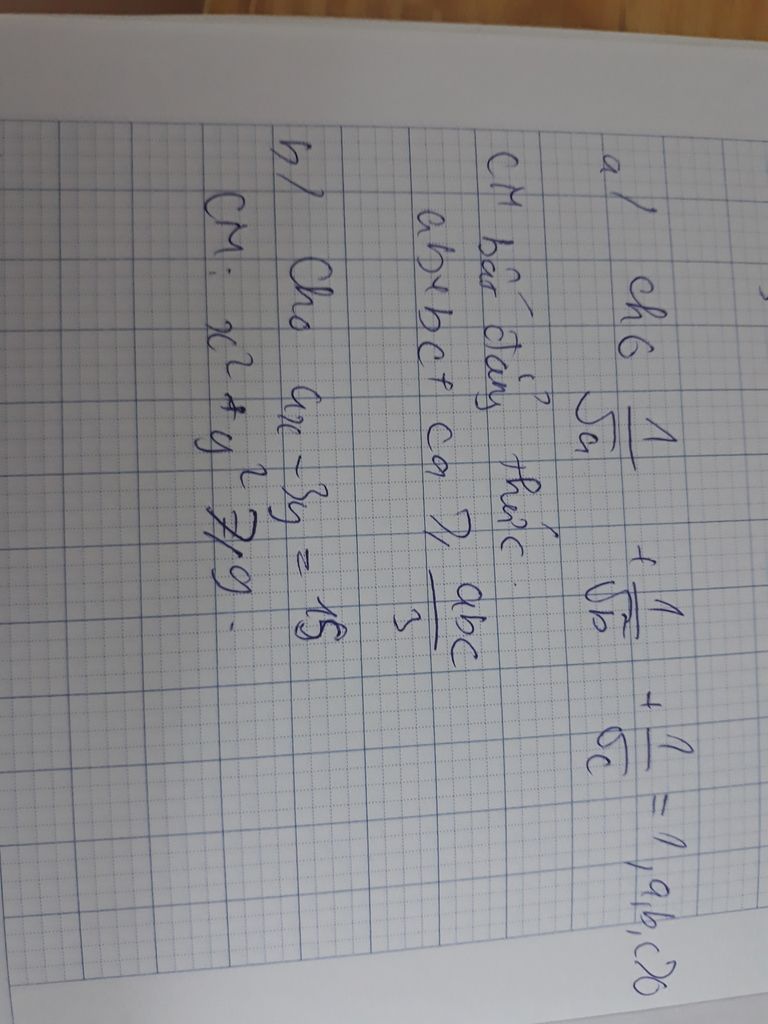 a/ cho 1/√a + 1/√b + 1/√c = 1, a,b,c>0
CM bất đẳng thức.
ab+bc+ca ⩾ abc/3
b/ Cho 4x-3y = 15
CM: x² + y² ⩾ 9.